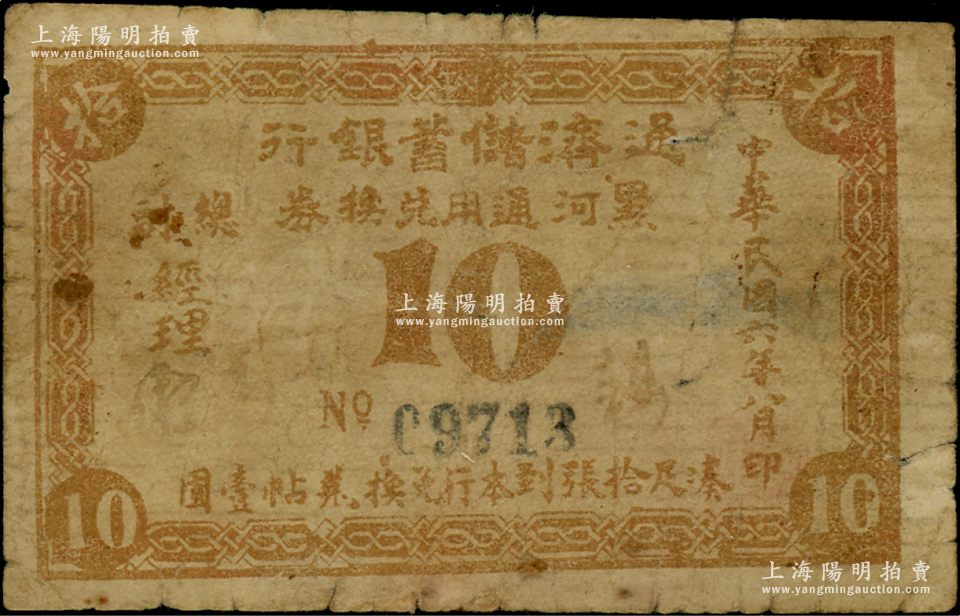 上海陽明拍賣
www.yangmingauction.com
拾
拾
通濟儲蓄銀行
黑河通用兌換券
中華民國六年八月印
總
經理
10
上海陽明拍賣
www.yangmingauction.com
No 09713
湊足拾張到本行兌換羌帖壹圓
10
10
上海陽明拍賣
www.yangmingauction.com